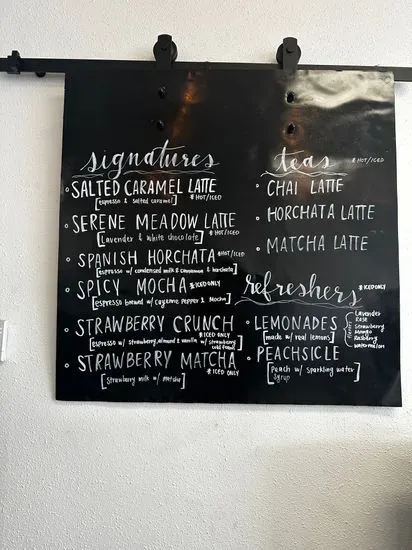 signatures
• SALTED CARAMEL LATTE
[espresso & salted caramel] * HOT/ICED
• SERENE MEADOW LATTE
[Lavender & white chocolate] * HOT/ICED
• SPANISH HORCHATA * HOT/ICED
[espresso w/ condensed milk & cinnamon & horchata]
• SPICY MOCHA * ICED ONLY
[espresso brewed w/ cayenne pepper & Mocha]
• STRAWBERRY CRUNCH
* ICED ONLY
[espresso w/ strawberry, almond & vanilla w/ strawberry
cold foam]
• STRAWBERRY MATCHA
* ICED ONLY
[Strawberry milk w/ matcha]
teas * HOT/ICED
• CHAI LATTE
• HORCHATA LATTE
• MATCHA LATTE
refreshers * ICED ONLY
• LEMONADES
[made w/ real lemons]
Lavender
Rose
Strawberry
Mango
Raspberry
watermelon
• PEACHSICLE
[Peach w/ sparkling water
Syrup]